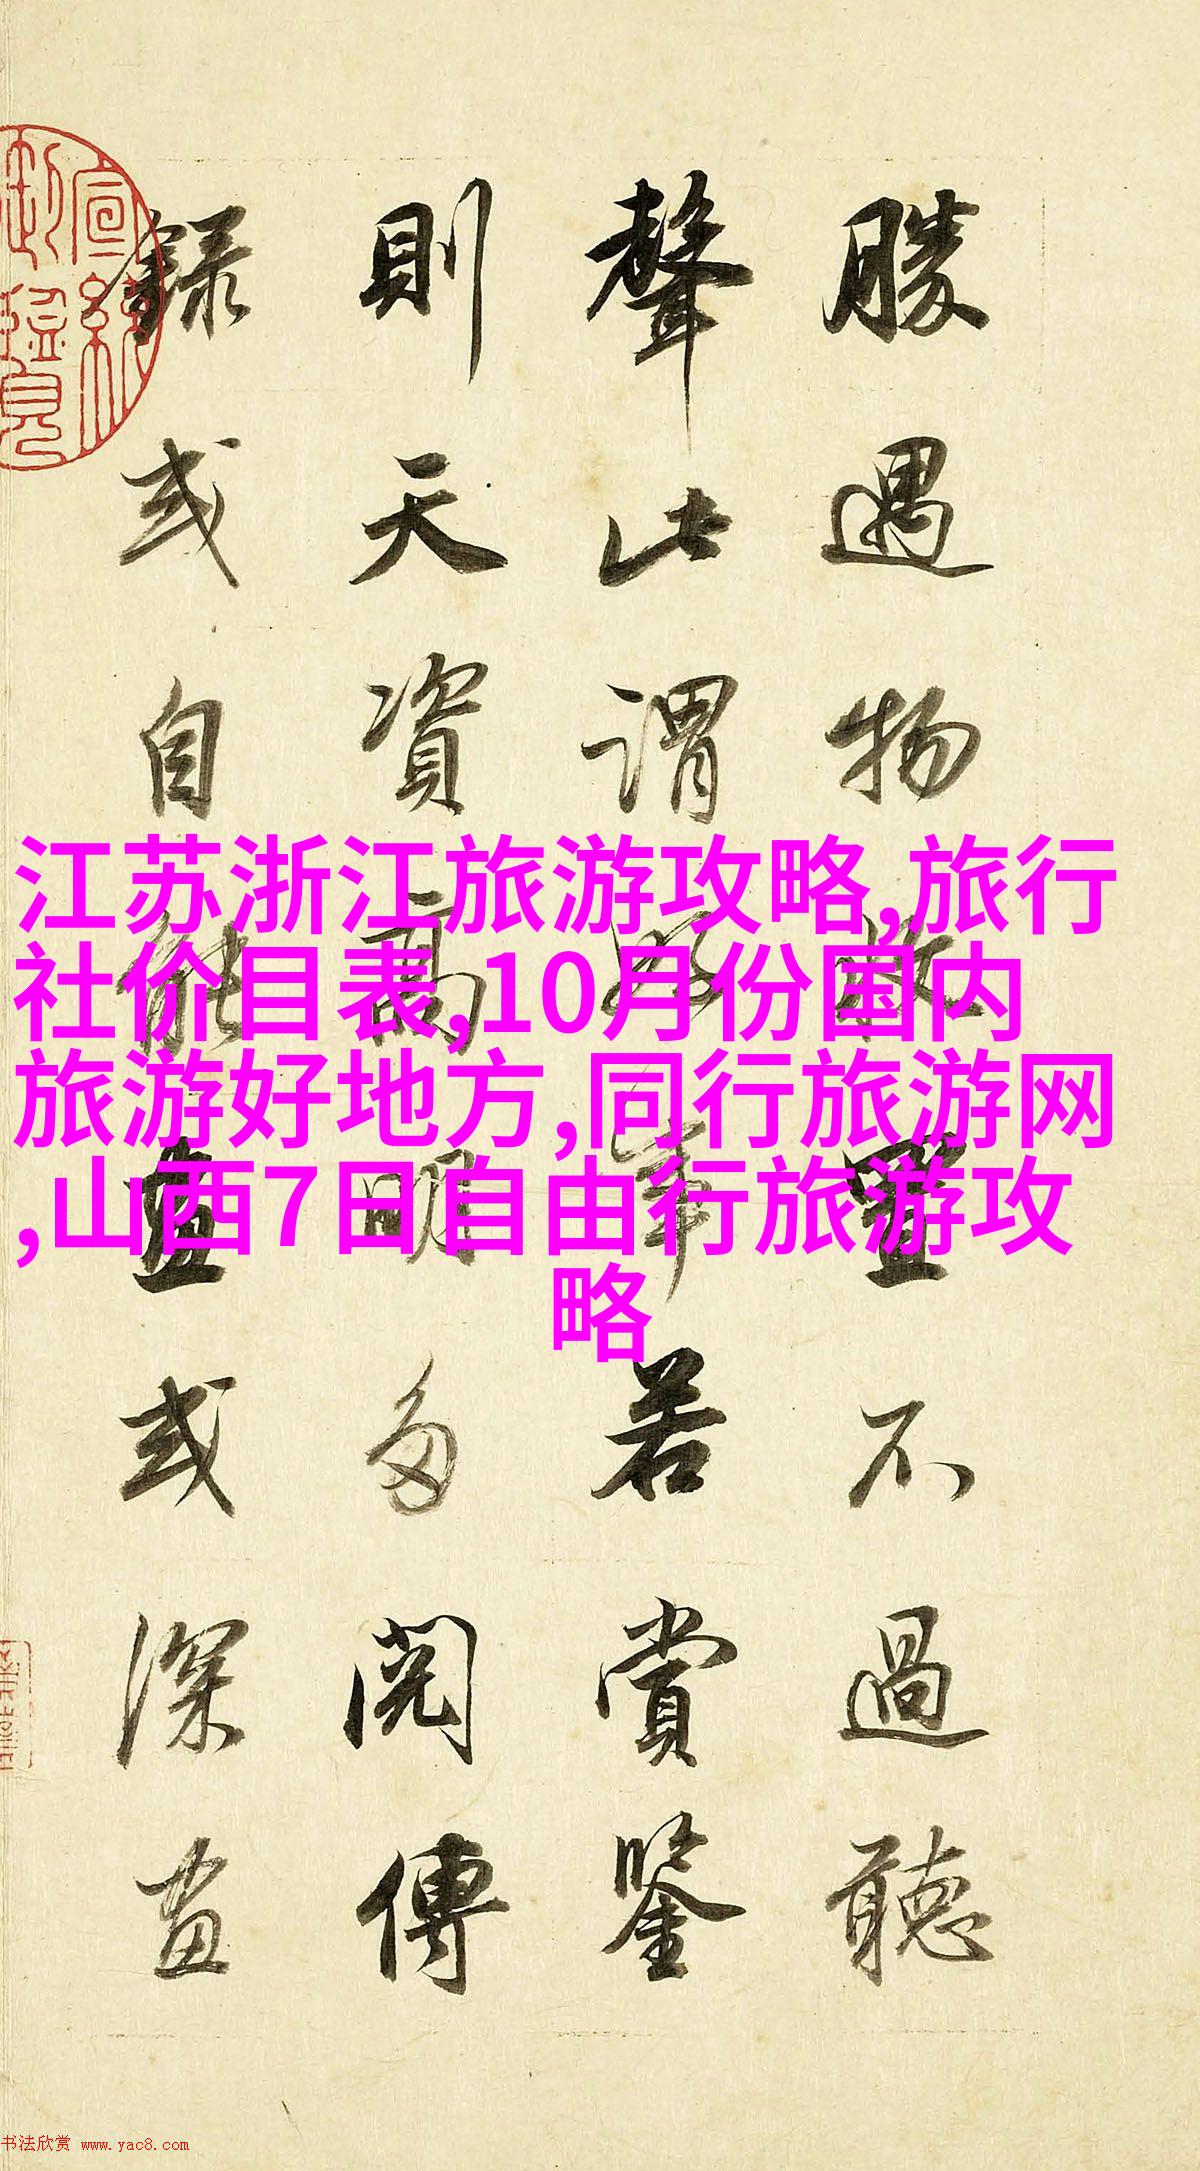 勝遇物收置不過聽
聲此謂好事若賞鑒
則天資高明多閱傳
錄或自能畫或深畫
宣統
江苏浙江旅游攻略,旅行
社价目表,10月份国内
旅游好地方,同行旅游网
,山西7日自由行旅游攻
略
书法欣赏 www.yac8.com